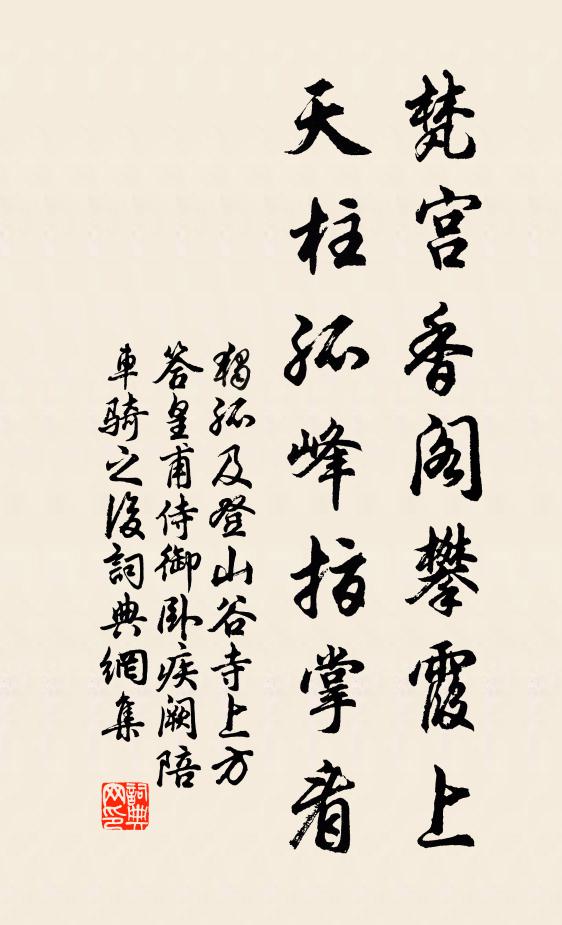 梵宫香阁攀霞上
天柱孤峰指掌看
獨孤及登山谷寺上方
答皇甫侍御卧疾阙陪
車骑之後詞典網集
詞典
网印